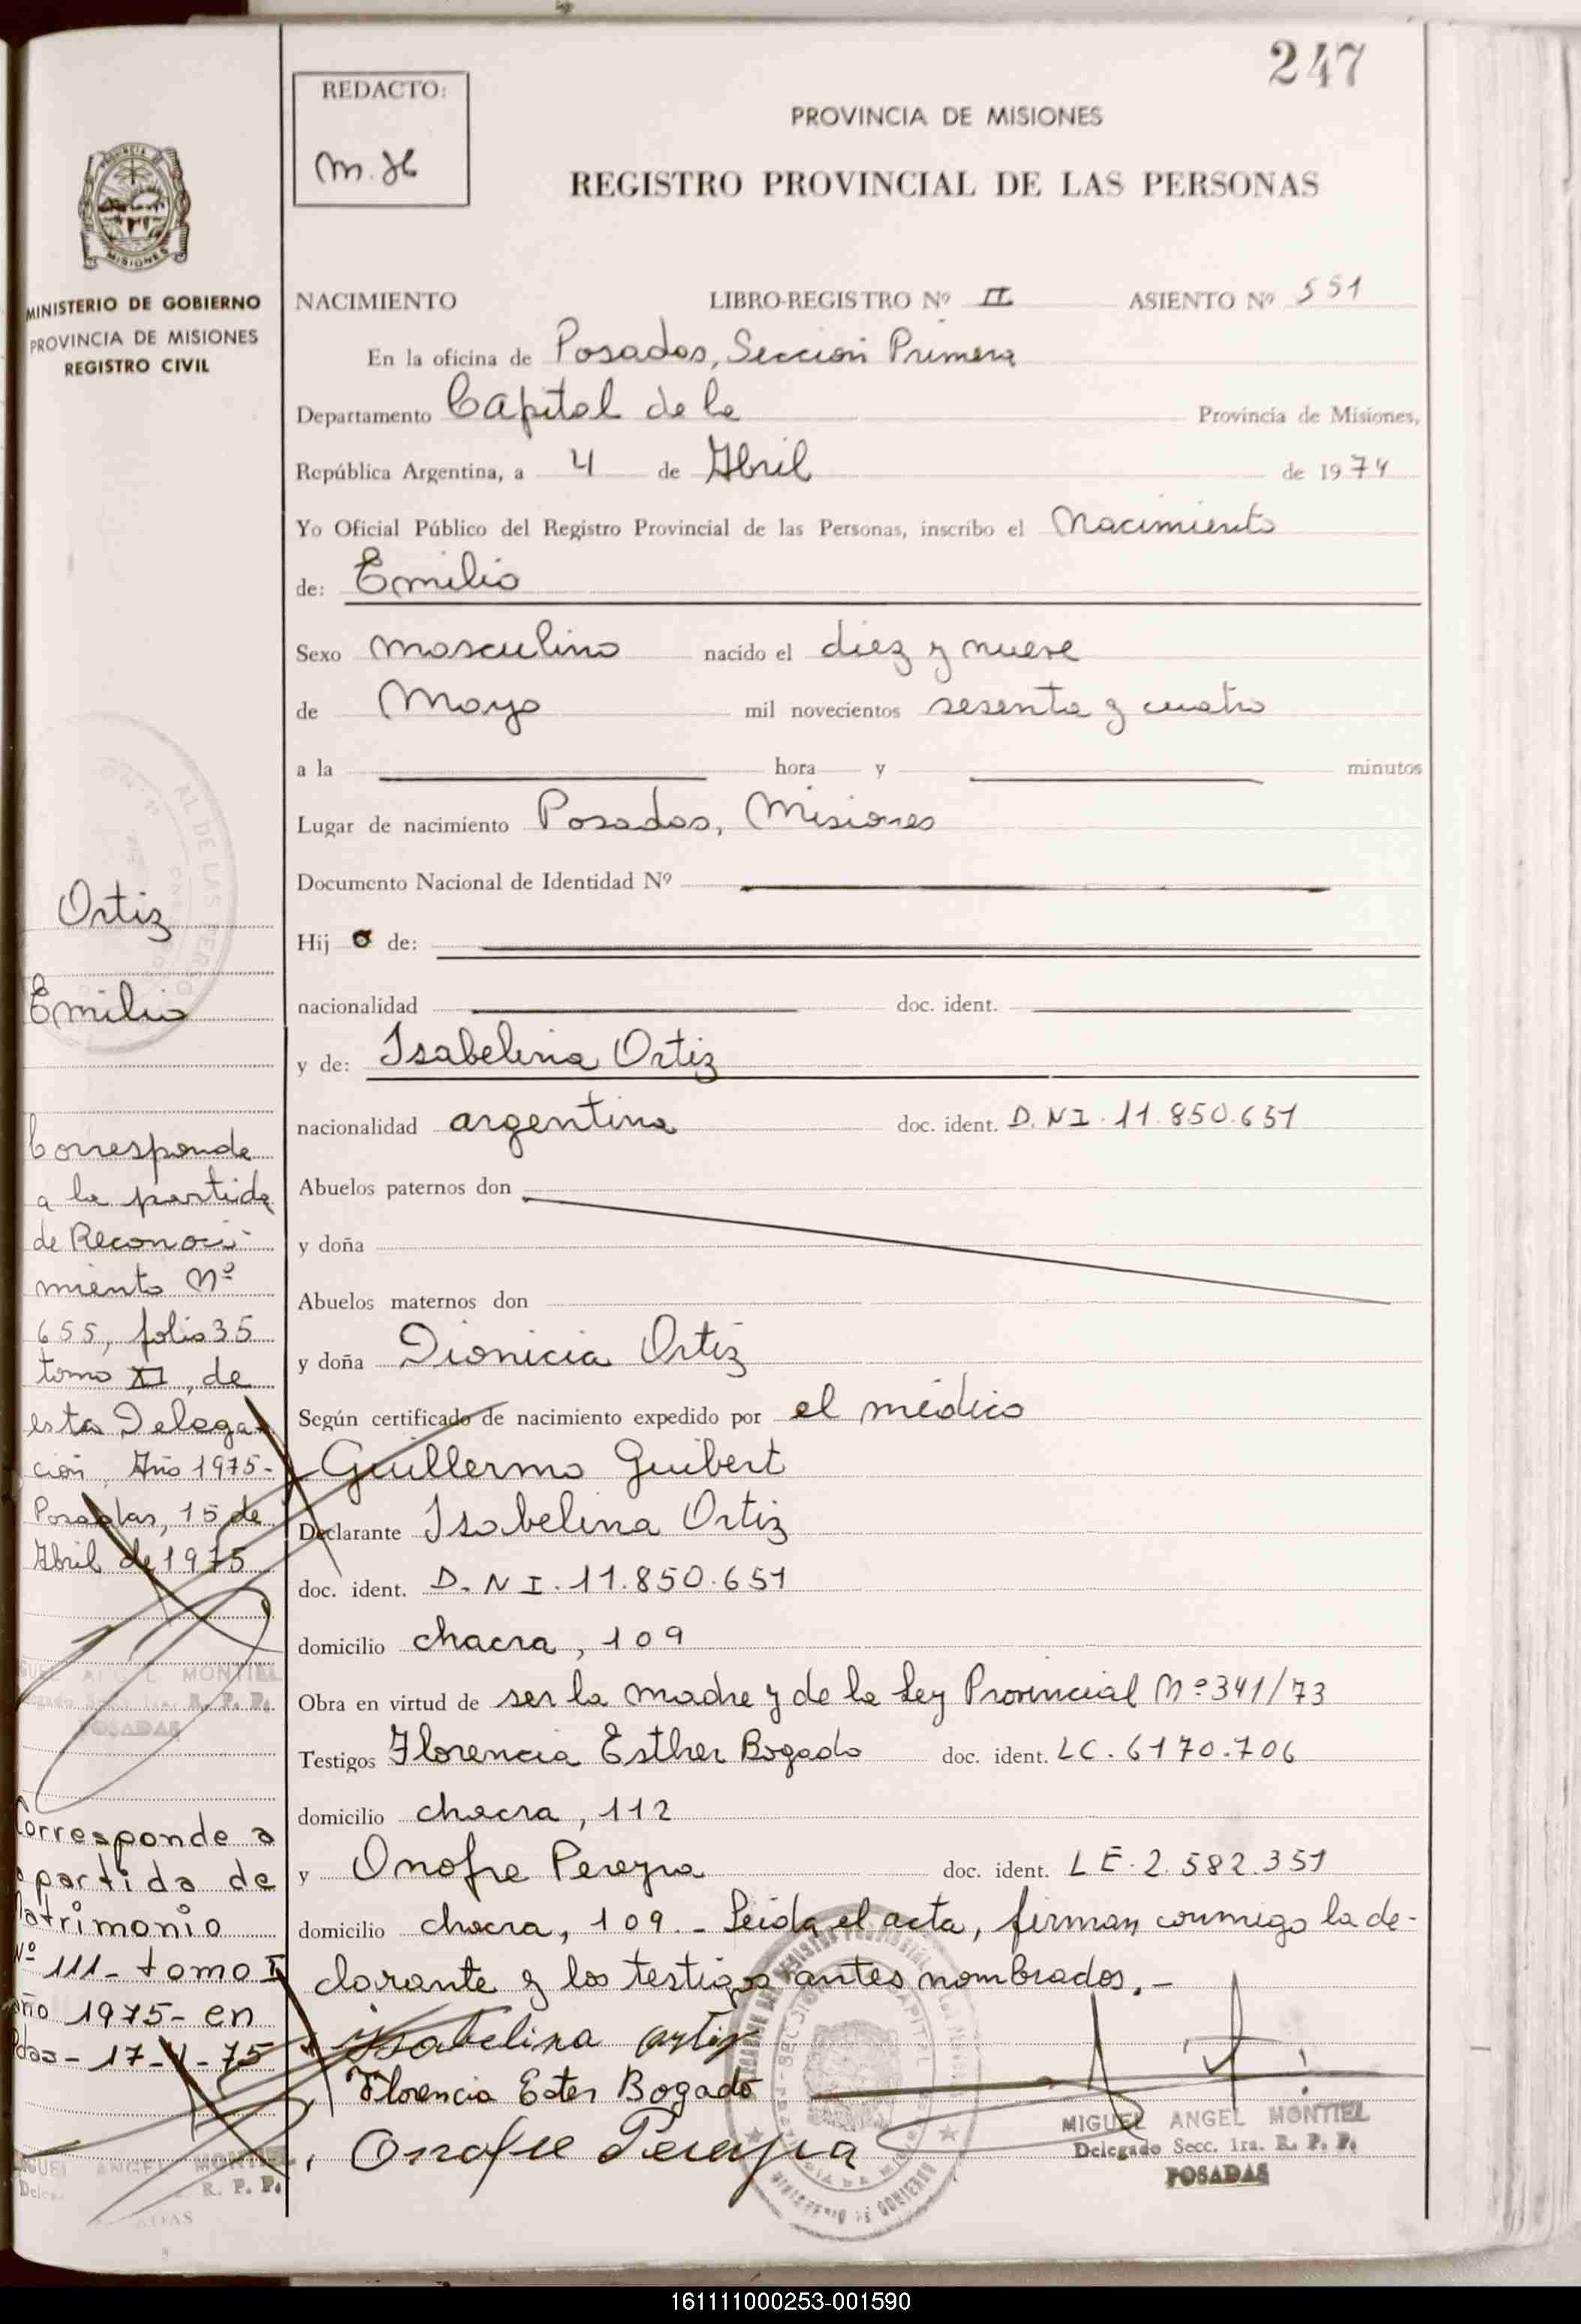 247
REDACTO:
PROVINCIA DE MISIONES
REGISTRO PROVINCIAL DE LAS PERSONAS
MISIONES
MINISTERIO DE GOBIERNO
PROVINCIA DE MISIONES
REGISTRO CIVIL
NACIMIENTO LIBRO-REGISTRO Nº II ASIENTO Nº 551
En la oficina de Posadas, Sección Primera
Departamento Capital de la Provincia de Misiones,
República Argentina, a 4 de Abril de 1974
Yo Oficial Público del Registro Provincial de las Personas, inscribo el Nacimiento
de: Emilio
Sexo masculino nacido el diez y nueve
de Mayo mil novecientos sesenta y cuatro
a la hora y minutos
Lugar de nacimiento Posadas, Misiones
Documento Nacional de Identidad Nº
Hij o de:
nacionalidad doc. ident.
y de: Isabelina Ortiz
nacionalidad argentina doc. ident. D.N.I. 11.850.651
Abuelos paternos don
y doña
Abuelos maternos don
y doña Dionicia Ortiz
Según certificado de nacimiento expedido por el médico
Guillermo Guibert
Declarante Isabelina Ortiz
doc. ident. D.N.I. 11.850.651
domicilio chacra, 109
Obra en virtud de ser la madre y de la Ley Provincial Nº 341/73
Testigos Florencia Esther Bogado doc. ident. LC. 6170.706
domicilio chacra, 112
y Onofre Pereyra doc. ident. LE. 2.582.351
domicilio chacra, 109.- Leida el acta, firman conmigo la de-
clarante y los testigos antes nombrados.-
Isabelina ortiz
Florencia Ester Bogado
Onofre Pereyra
MIGUEL ANGEL MONTIEL
Delegado Secc. 1ra. R. P. P.
POSADAS
Ortiz
Emilio
Corresponde
a la partida
de Reconoci-
miento Nº
655, folio 35
tomo XI, de
esta Delega-
ción, Año 1975-
Posadas, 15 de
Abril de 1975
MIGUEL ANGEL MONTIEL
Delegado Secc. 1ra. R. P. P.
POSADAS
Corresponde a
partida de
Matrimonio
Nº 111- tomo I
año 1975- en
Pdas- 17-V-75
MIGUEL ANGEL MONTIEL
R. P. P.
161111000253-001590